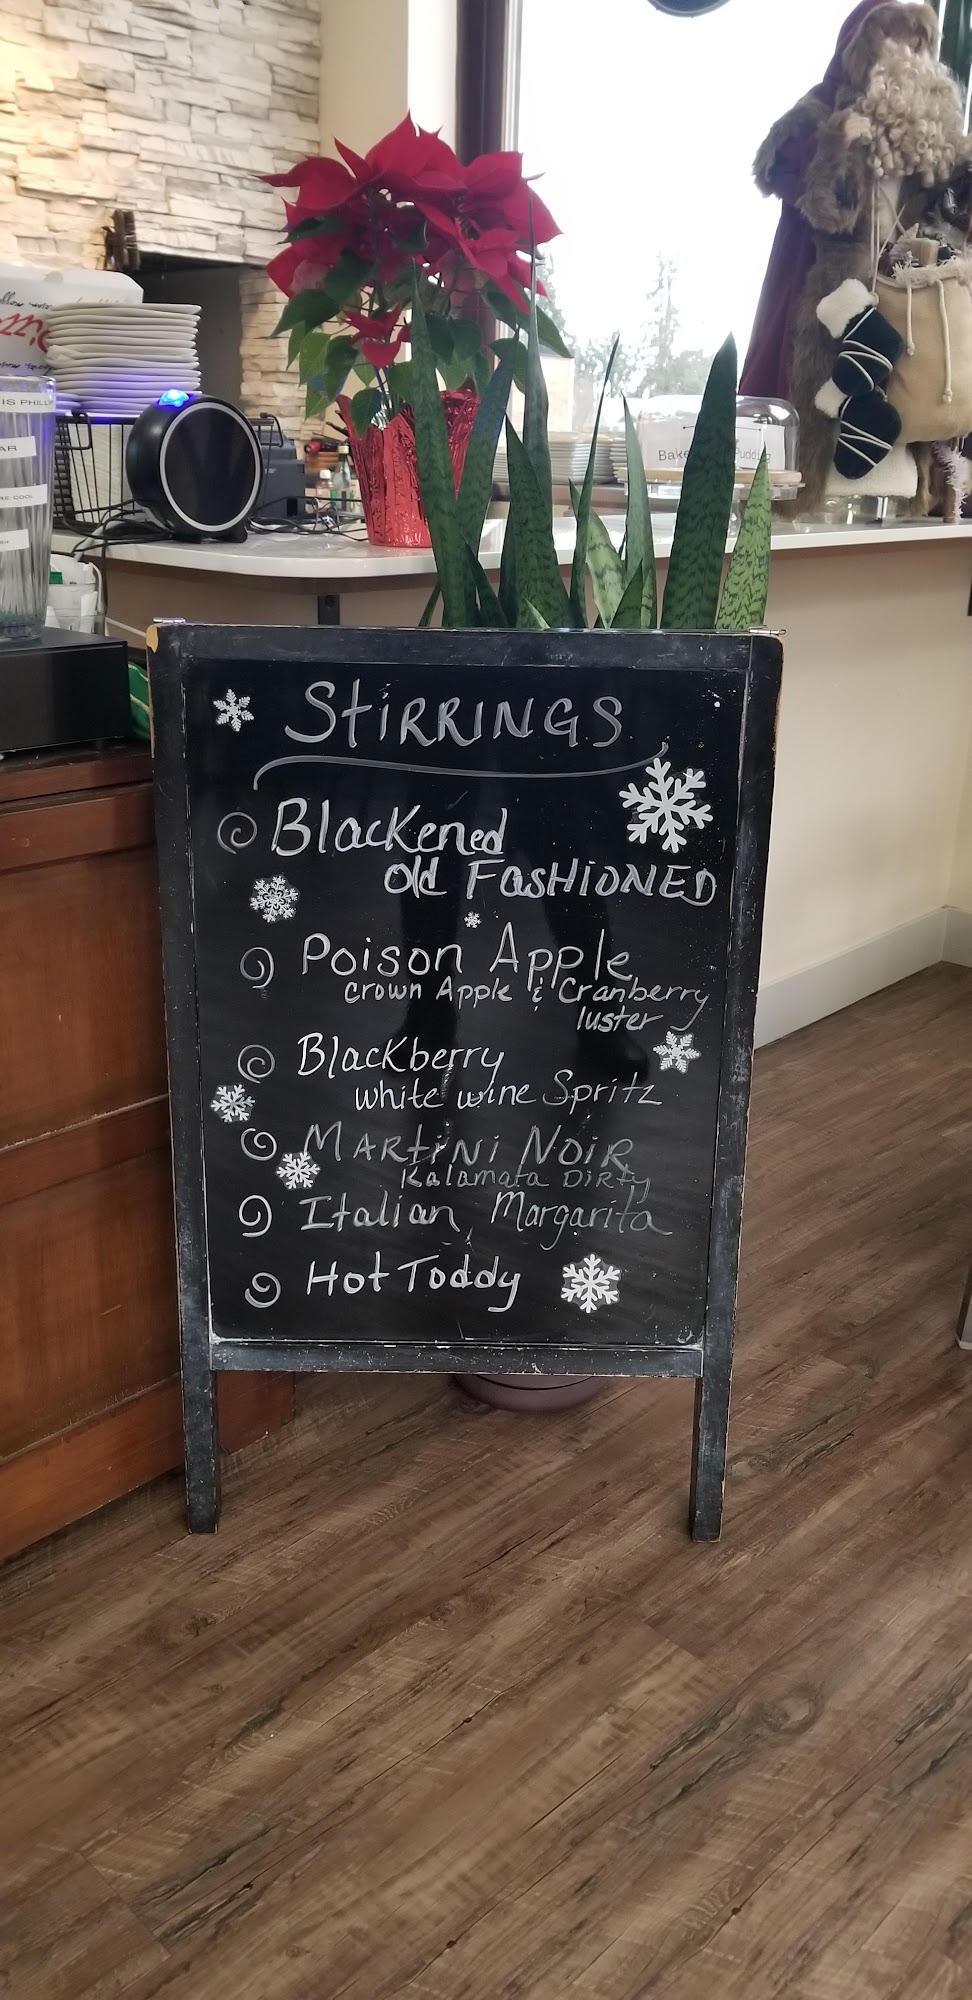 STiRRINGS
Blackened
old FasHIONED
Poison Apple
crown Apple & Cranberry
luster
Blackberry
white wine Spritz
MARtiNi NoiR
Kalamata DiRty
Italian Margarita
Hot Toddy
Bake Pudding
IS PHILL
AR
RE COOL